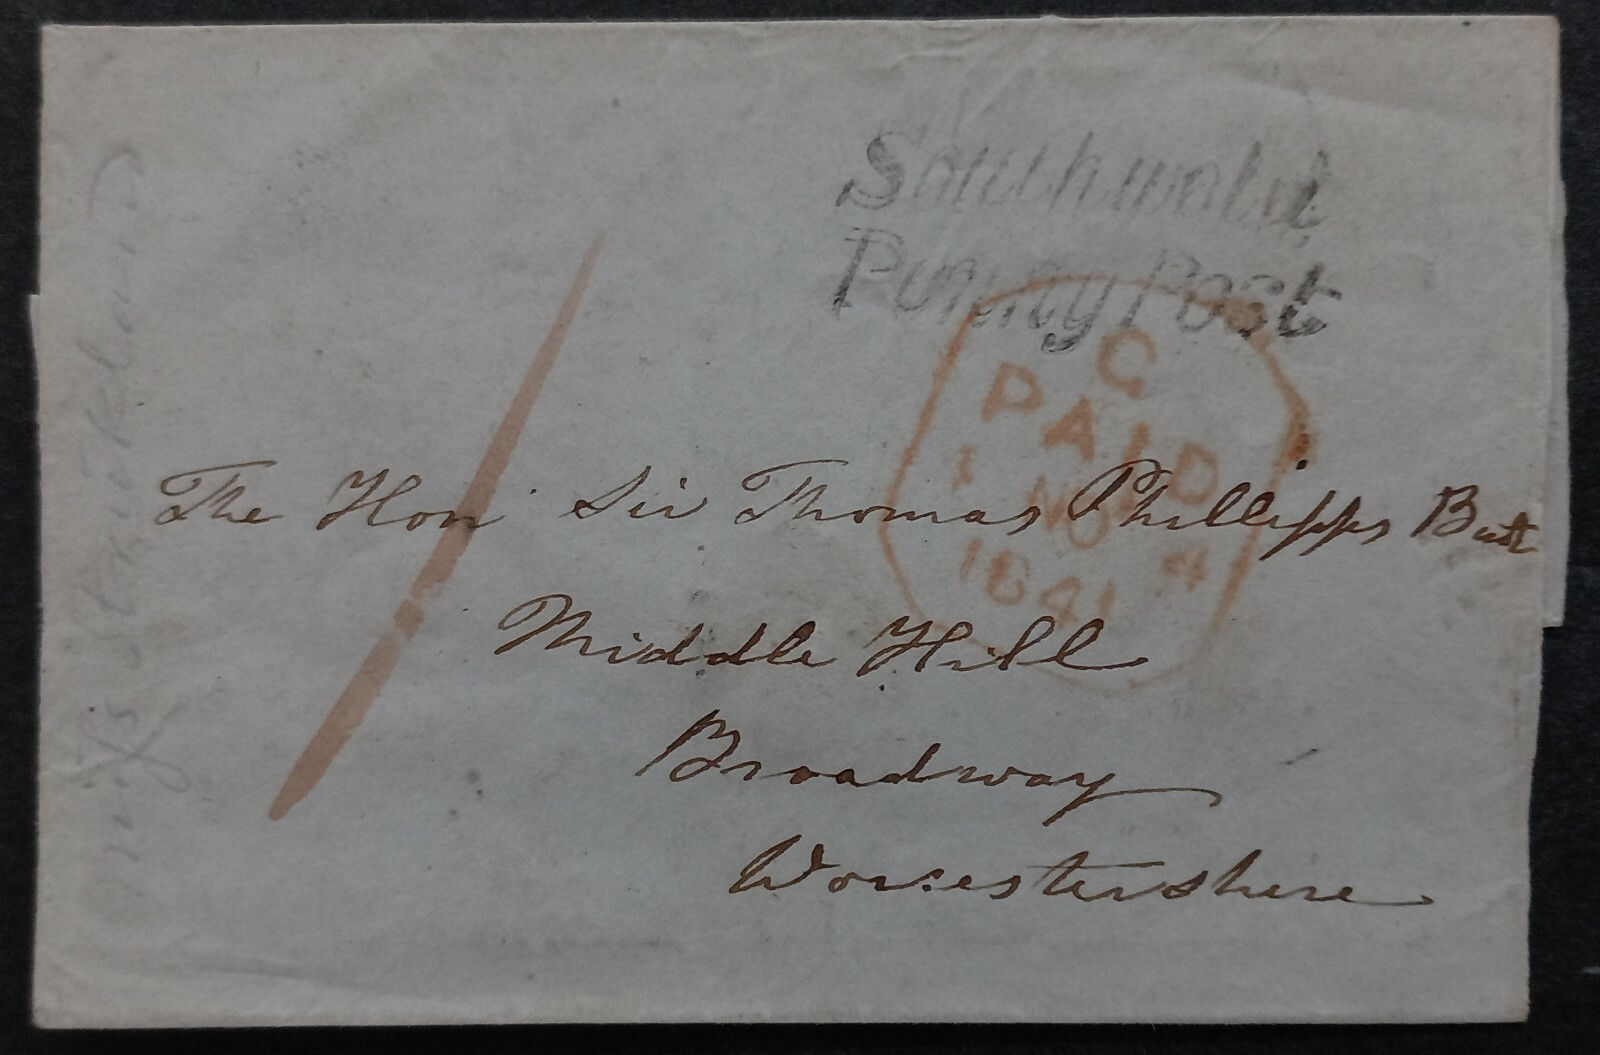 Southwald
Penny Post
C
PAID
1 NO 4
1841
The Hon Sir Thomas Phillipps Bart
Middle Hill
Broadway
Worcestershire